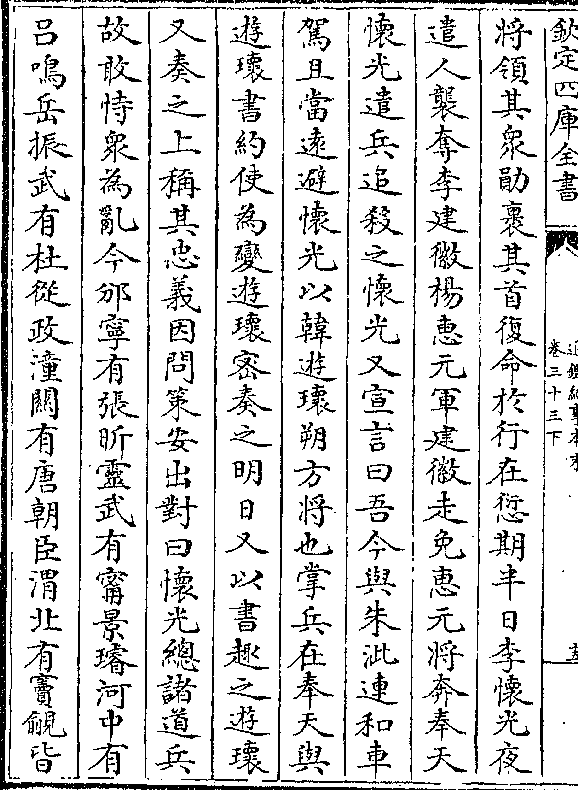 欽定四庫全書
通鑑紀事本末
卷三十三下
將領其衆勛裹其首復命於行在愆期半日李懷光夜
遣人襲奪李建徽楊惠元軍建徽走免惠元將奔奉天
懷光遣兵追殺之懷光又宣言曰吾今與朱泚連和車
駕且當遠避懷光以韓遊瓌朔方將也掌兵在奉天與
遊瓌書約使為變遊瓌密奏之明日又以書趣之遊瓌
又奏之上稱其忠義因問策安出對曰懷光總諸道兵
故敢恃衆為亂今邠寧有張昕靈武有甯景璿河中有
呂鳴岳振武有杜從政潼關有唐朝臣渭北有竇覦皆